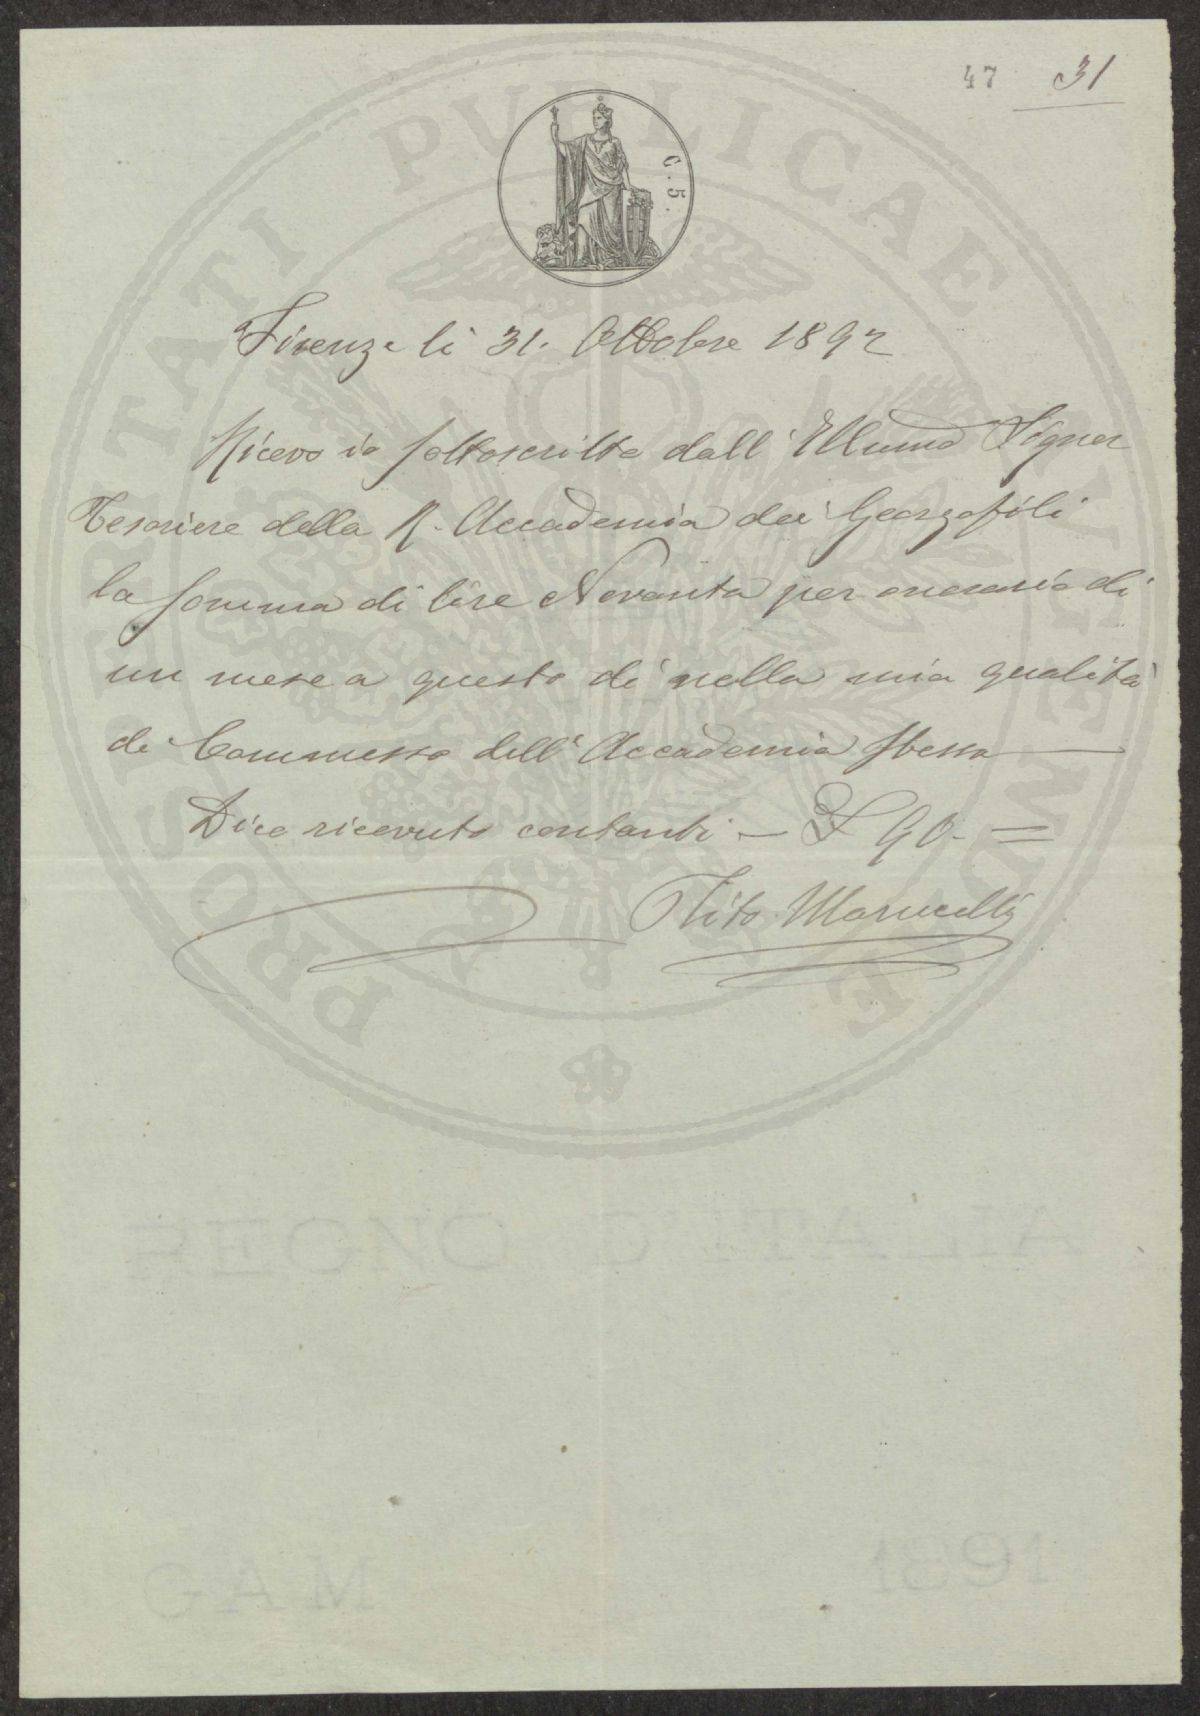 47 31
C. 5.
PROSPERITATI PUBLICAE AVGENDAE
Firenze lì 31. Ottobre 1892
Ricevo io sottoscritto dall' Illumo Signor
Tesoriere della R. Accademia dei Georgofili
la somma di lire Novanta per onorario di
un mese a questo dì nella mia qualità
di Commesso dell' Accademia stessa —
Dico ricevuto contanti — £ 90. =
Tito Marucelli
REGNO D'ITALIA
GAM 1891